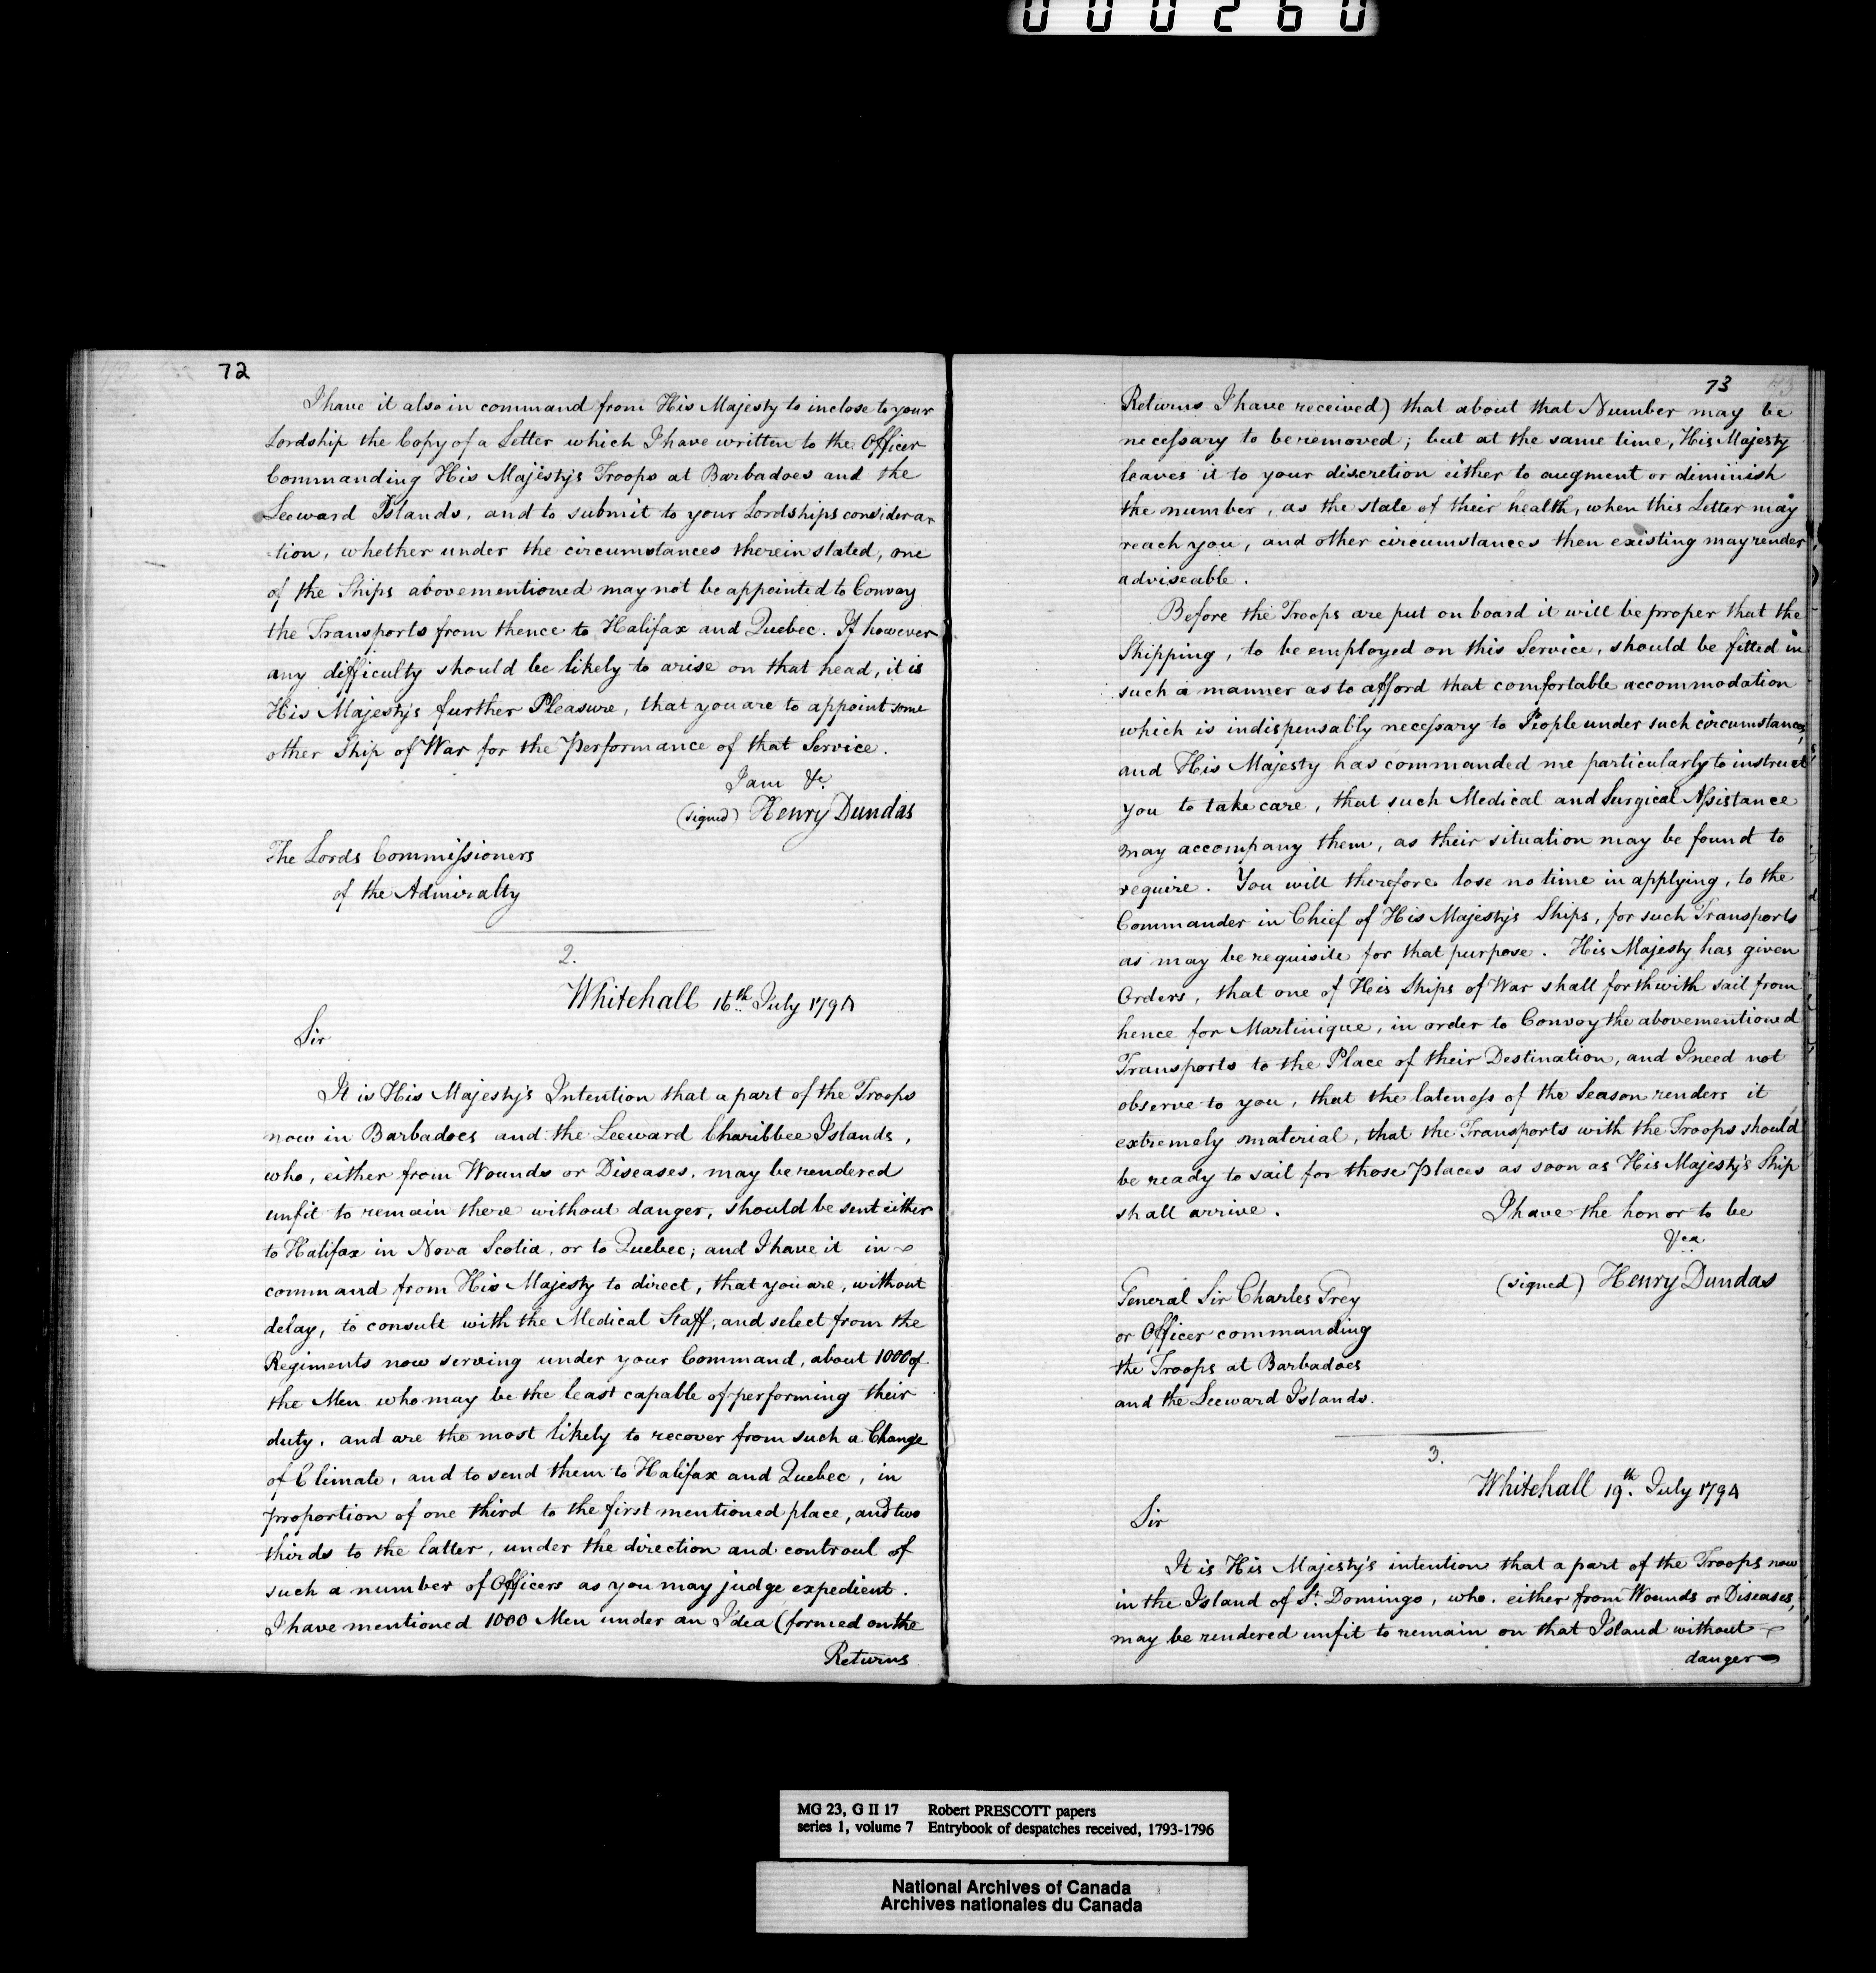 000260
72
I have it also in command from His Majesty to inclose to your
Lordship the Copy of a Letter which I have written to the Officer
Commanding His Majesty's Troops at Barbadoes and the
Leeward Islands, and to submit to your Lordships considera-
-tion, whether under the circumstances therein stated, one
of the Ships abovementioned may not be appointed to Convoy
the Transports from thence to Halifax and Quebec. If however
any difficulty should be likely to arise on that head, it is
His Majesty's further Pleasure, that you are to appoint some
other Ship of War for the Performance of that Service.
I am &c.
(signed) Henry Dundas
The Lords Commissioners
of the Admiralty
2.
Whitehall 16th July 1794
Sir
It is His Majesty's Intention that a part of the Troops
now in Barbadoes and the Leeward Charibbee Islands,
who, either from Wounds or Diseases, may be rendered
unfit to remain there without danger, should be sent either
to Halifax in Nova Scotia, or to Quebec; and I have it in
command from His Majesty to direct, that you are, without
delay, to consult with the Medical Staff, and select from the
Regiments now serving under your Command, about 1000 of
the Men who may be the least capable of performing their
duty, and are the most likely to recover from such a Change
of Climate, and to send them to Halifax and Quebec, in
proportion of one third to the first mentioned place, and two
thirds to the latter, under the direction and controul of
such a number of Officers as you may judge expedient.
I have mentioned 1000 Men under an Idea (formed on the
Returns
73
Returns I have received) that about that Number may be
necessary to be removed; but at the same time, His Majesty
leaves it to your discretion either to augment or diminish
the number, as the state of their health, when this Letter may
reach you, and other circumstances then existing may render
adviseable.
Before the Troops are put on board it will be proper that the
Shipping, to be employed on this Service, should be fitted in
such a manner as to afford that comfortable accommodation
which is indispensably necessary to People under such circumstances,
and His Majesty has commanded me particularly to instruct
you to take care, that such Medical and Surgical Assistance
may accompany them, as their situation may be found to
require. You will therefore lose no time in applying, to the
Commander in Chief of His Majesty's Ships, for such Transports
as may be requisite for that purpose. His Majesty has given
Orders, that one of His Ships of War shall forthwith sail from
hence for Martinique, in order to Convoy the abovementioned
Transports to the Place of their Destination, and I need not
observe to you, that the lateness of the Season renders it
extremely material, that the Transports with the Troops should
be ready to sail for those Places as soon as His Majesty's Ship
shall arrive. I have the honor to be
&ca
(signed) Henry Dundas
General Sir Charles Grey
or Officer commanding
the Troops at Barbadoes
and the Leeward Islands.
3.
Whitehall 19th July 1794
Sir
It is His Majesty's intention that a part of the Troops now
in the Island of St. Domingo, who, either from Wounds or Diseases,
may be rendered unfit to remain on that Island without
danger
MG 23, G II 17 Robert PRESCOTT papers
series 1, volume 7 Entrybook of despatches received, 1793-1796
National Archives of Canada
Archives nationales du Canada